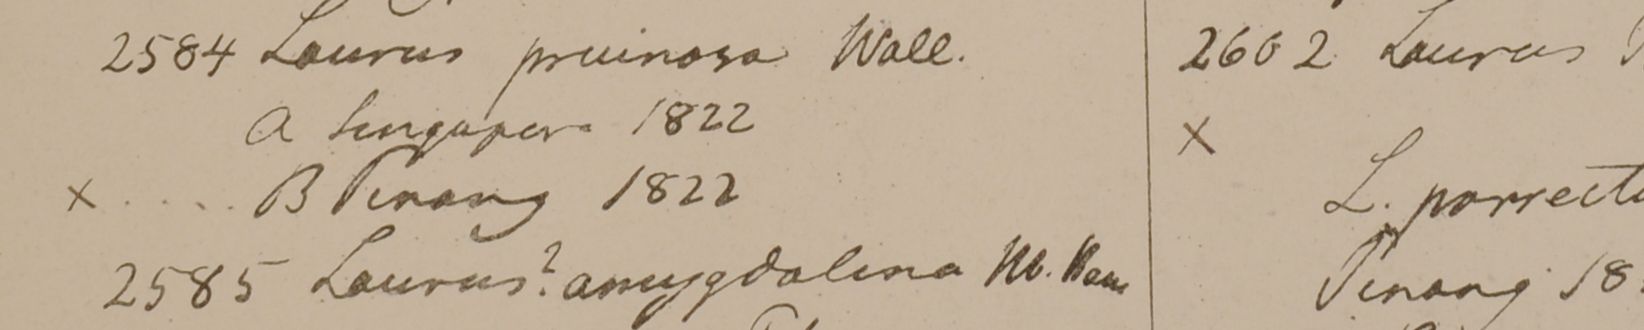 2584 Laurus pruinosa Wall.
a Singapore 1822
x .... B Penang 1822
2585 Laurus? amygdalina Hb. Ham
2602 Laurus
x
L. porrecta
Penang 18